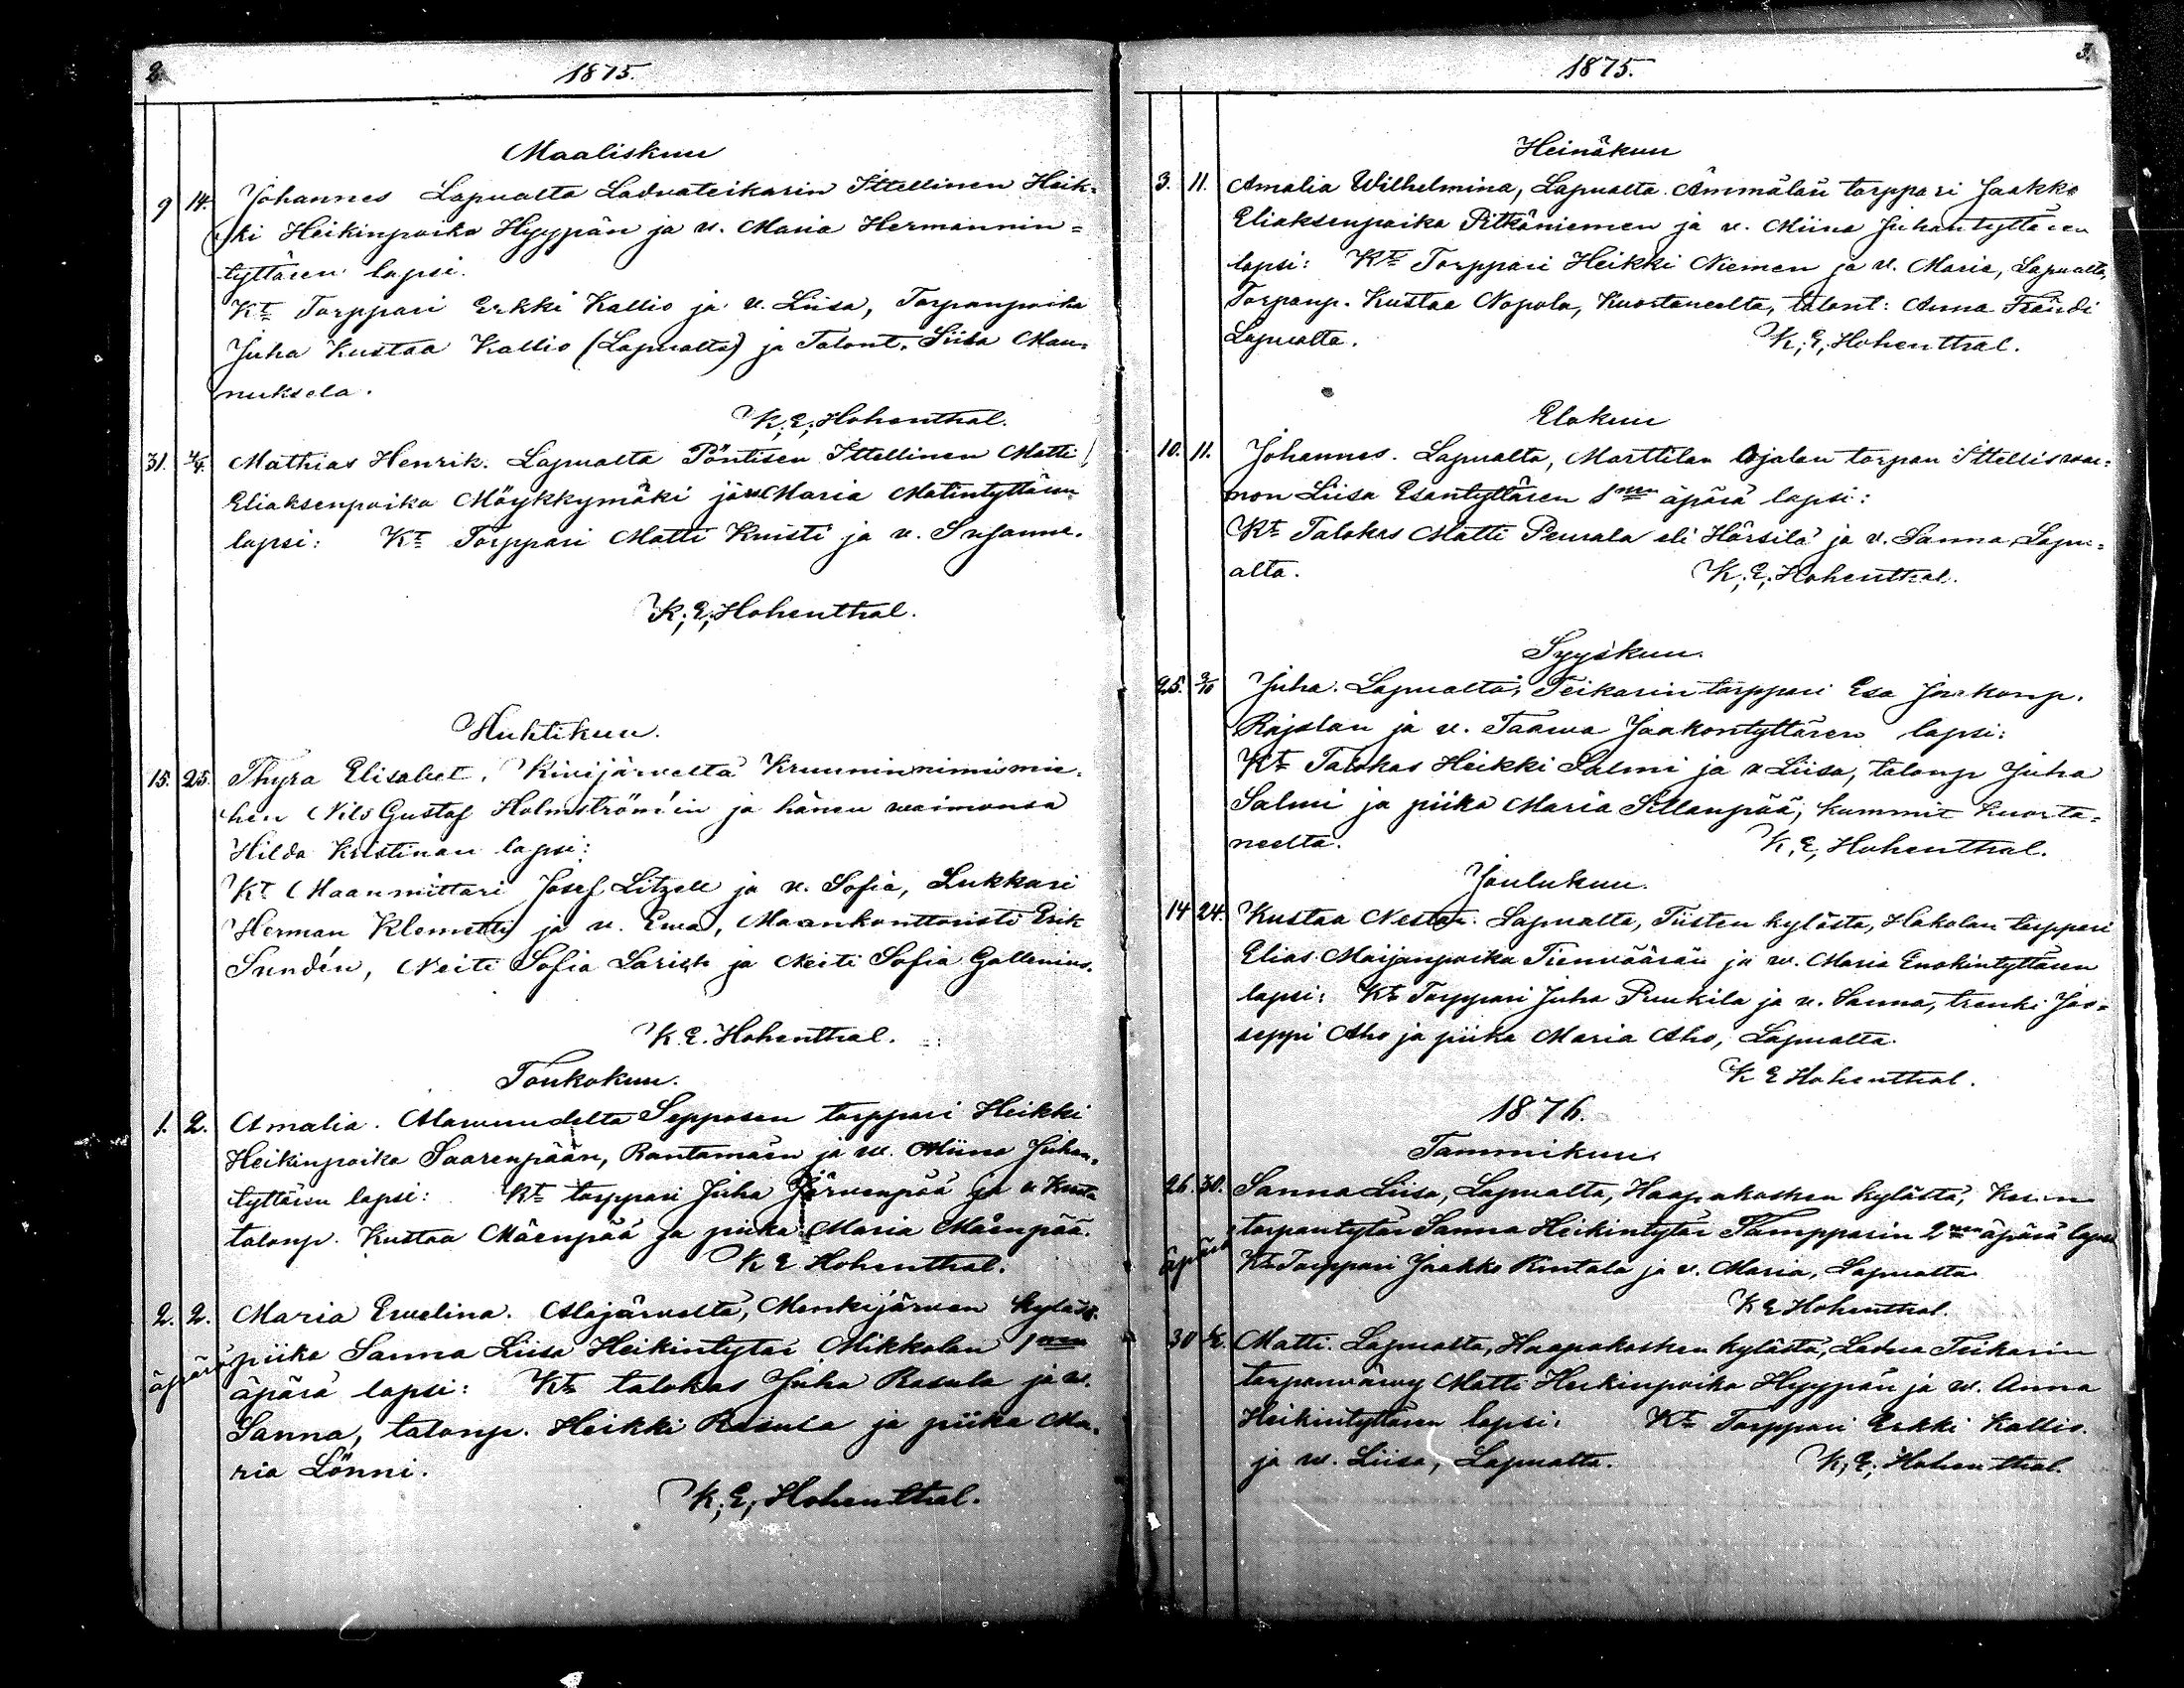 2.
1875.
Maaliskuu
9 14. Johannes Lapualta Laduateikarin Ittellinen Heik=
ki Heikinpoika Hyyppän ja w. Maria Hermannin=
tyttären lapsi.
Kt Torppari Erkki Kallio ja w. Liisa, Torpanpoika
Juha Kustaa Kallio (Lapualta) ja Talont. Liisa Man=
nuksela.
K. E. Hohenthal.
31. 4/4. Mathias Henrik. Lapualta Pöntisen Ittellinen Matti
Eliaksenpoika Möykkymäki ja w Maria Matintyttären
lapsi: Kt Torppari Matti Knisti ja w. Susanne.
K. E. Hohenthal.
Huhtikuu.
15. 25. Thyra Elisabet. Kivijärveltä Kruuninnimismie=
hen Nils Gustaf Holmström'in ja hänen waimonsa
Hilda Kristinan lapsi:
Kt Maanmittari Josef Litzell ja w. Sofia, Lukkari
Herman Klemetti ja w. Ewa, Maankonttoristi Erik
Sundén, Neiti Sofia ja Neiti Sofia Gallenius.
K. E. Hohenthal.
Toukokuu.
1. 2. Amalia. Alawuudelta Sepposen torppari Heikki
Heikinpoika Saarenpään, Rantamäen ja w. Miina Juhan=
tyttären lapsi: Kt torppari Juha Järvenpää ja w
talonp. Kustaa Mäenpää ja piika Maria Mäenpää.
K E Hohenthal.
2. 2. Maria Ewelina. Alajärveltä, Menkijärwen kyläst.
äpärä piika Sanna Liisa Heikintytär Mikkolan 1nen
äpärä lapsi: Kt talokas Juha Rasula ja w.
Sanna, talonp. Heikki Rasula ja piika Ma=
ria Lönni.
K. E. Hohenthal.
3.
1875.
Heinäkuu
3. 11. Amalia Wilhelmina, Lapualta. Ämmälän torppari Jaakko
Eliaksenpoika Pitkäniemen ja w. Miina Juhantyttären
lapsi: Kt Torppari Heikki Niemen ja w. Maria, Lapualta,
Torpanp. Kustaa Nopola, Kuortaneelta, talont: Anna Frändi
Lapualta. K. E. Hohenthal.
Elokuu
10. 11. Johannes. Lapualta, Marttilan Ojalan torpan Ittelliswai=
mon Liisa Esantyttären 1nen äpärä lapsi:
Kt Talokas Matti Peurala eli Härsilä ja w. Sanna, Lapu=
alta. K. E. Hohenthal.
Syyskuu.
25. 3/10 Juha. Lapualta, Teikarin torppari Esa Jaakonp.
Rajalan ja w. Taawa Jaakontyttären lapsi:
Kt Talokas Heikki Salmi ja w Liisa, talonp Juha
Salmi ja piika Maria Sillanpää, kummit Kuorta=
neelta. K. E. Hohenthal.
Joulukuu.
14 24. Kustaa Nestor. Lapualta, Tiisten kylästä, Hakolan torppari
Elias Maijanpoika Tienväärän ja w. Maria Enokintyttären
lapsi: Kt Torppari Juha Puukila ja w. Sanna, trenki Joo=
seppi Aho ja piika Maria Aho, Lapualta.
K E Hohenthal.
1876.
Tammikuu.
26. 30. Sanna Liisa, Lapualta, Haapakosken kylästä,
torpantytär Sanna Heikintytär Tampparin 2nen äpärä lapsi
äpärä Kt Torppari Jaakko Rintala ja w. Maria, Lapualta
K E Hohenthal.
30 Matti. Lapualta, Haapakosken kylästä, Ladua Teikarin
torpanväwy Matti Heikinpoika Hyypän ja w. Anna
Heikintyttären lapsi: Kt Torppari Erkki Kallio.
ja w. Liisa, Lapualta. K. E. Hohenthal.